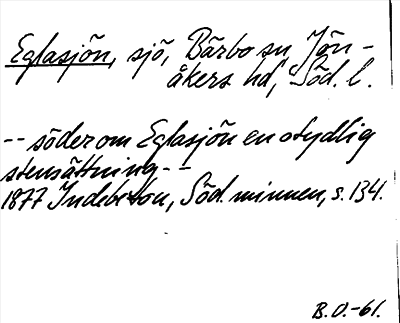 Eglasjön, sjö, Bärbo sn, Jön-
åkers hd, Söd. l.
-- söder om Eglasjön en otydlig
stensättning --
1877 Indebetou, Söd. minnen, s. 134.
B.O.-61.